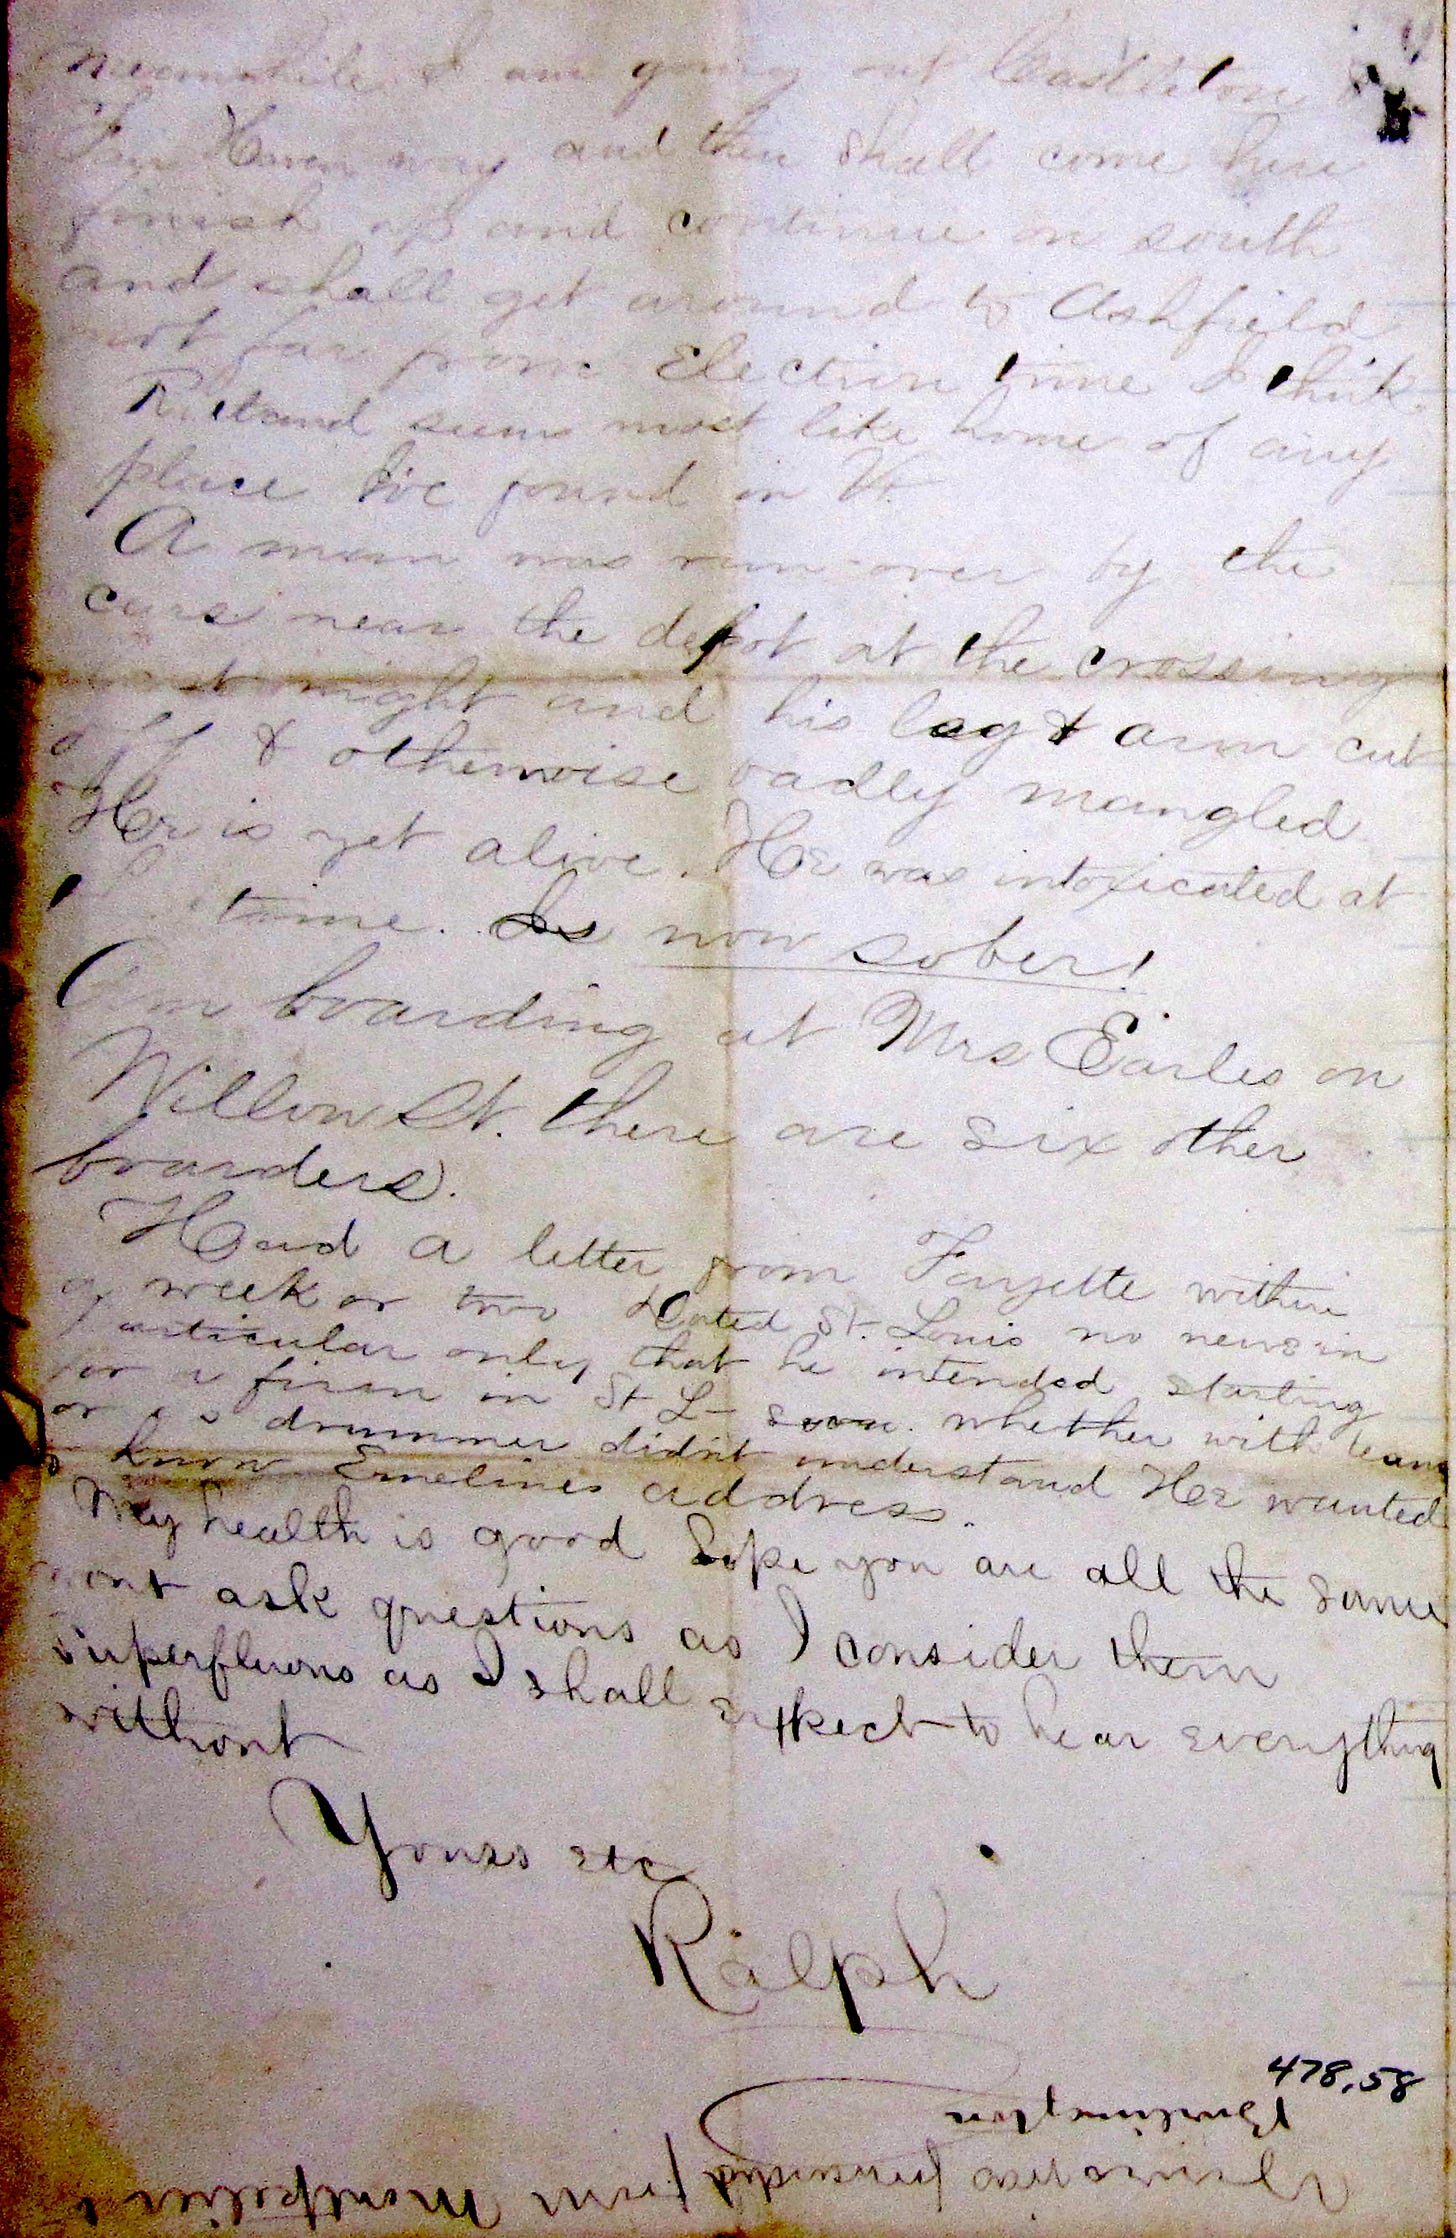 Meanwhile I am going out Castleton &
Fair Haven way and then shall come here
finish up and continue on south
and shall get around to Ashfield
not far from Election time I think.
Rutland seems most like home of any
place I've found in Vt.
A man was run over by the
cars near the depot at the crossing
last night and his leg & arm cut
off & otherwise badly mangled
He is yet alive. He was intoxicated at
time. Is now sober!
Am boarding at Mrs Earles on
Willow St. there are six other
boarders.
Had a letter from Fayette within
a week or two dated St. Louis no news in
particular only that he intended starting
for a firm in St L— soon. whether with team
or as drummer didn't understand He wanted
to know Emelines address.
My health is good hope you are all the same
wont ask questions as I consider them
superfluous as I shall expect to hear everything
without
Yours etc
Ralph
478.58
Yours was forwarded from Montpelier to
Burlington